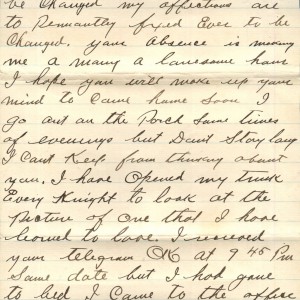 be Changed my affections are
to Permantly fixed Ever to be
Changed, your absence is making
me a many a lonesome hour
I hope you will make up your
mind to Come home Soon I
go out on the Porch Some times
of evenings but Dont Stay long
I Cant Keep from thinking about
you. I have Opened my trunk
Every Knight to look at the
Picture of One that I have
learned to love. I received
your telegram OK at 9 45 Pm
Same date but I had gone
to bed I Came to the office